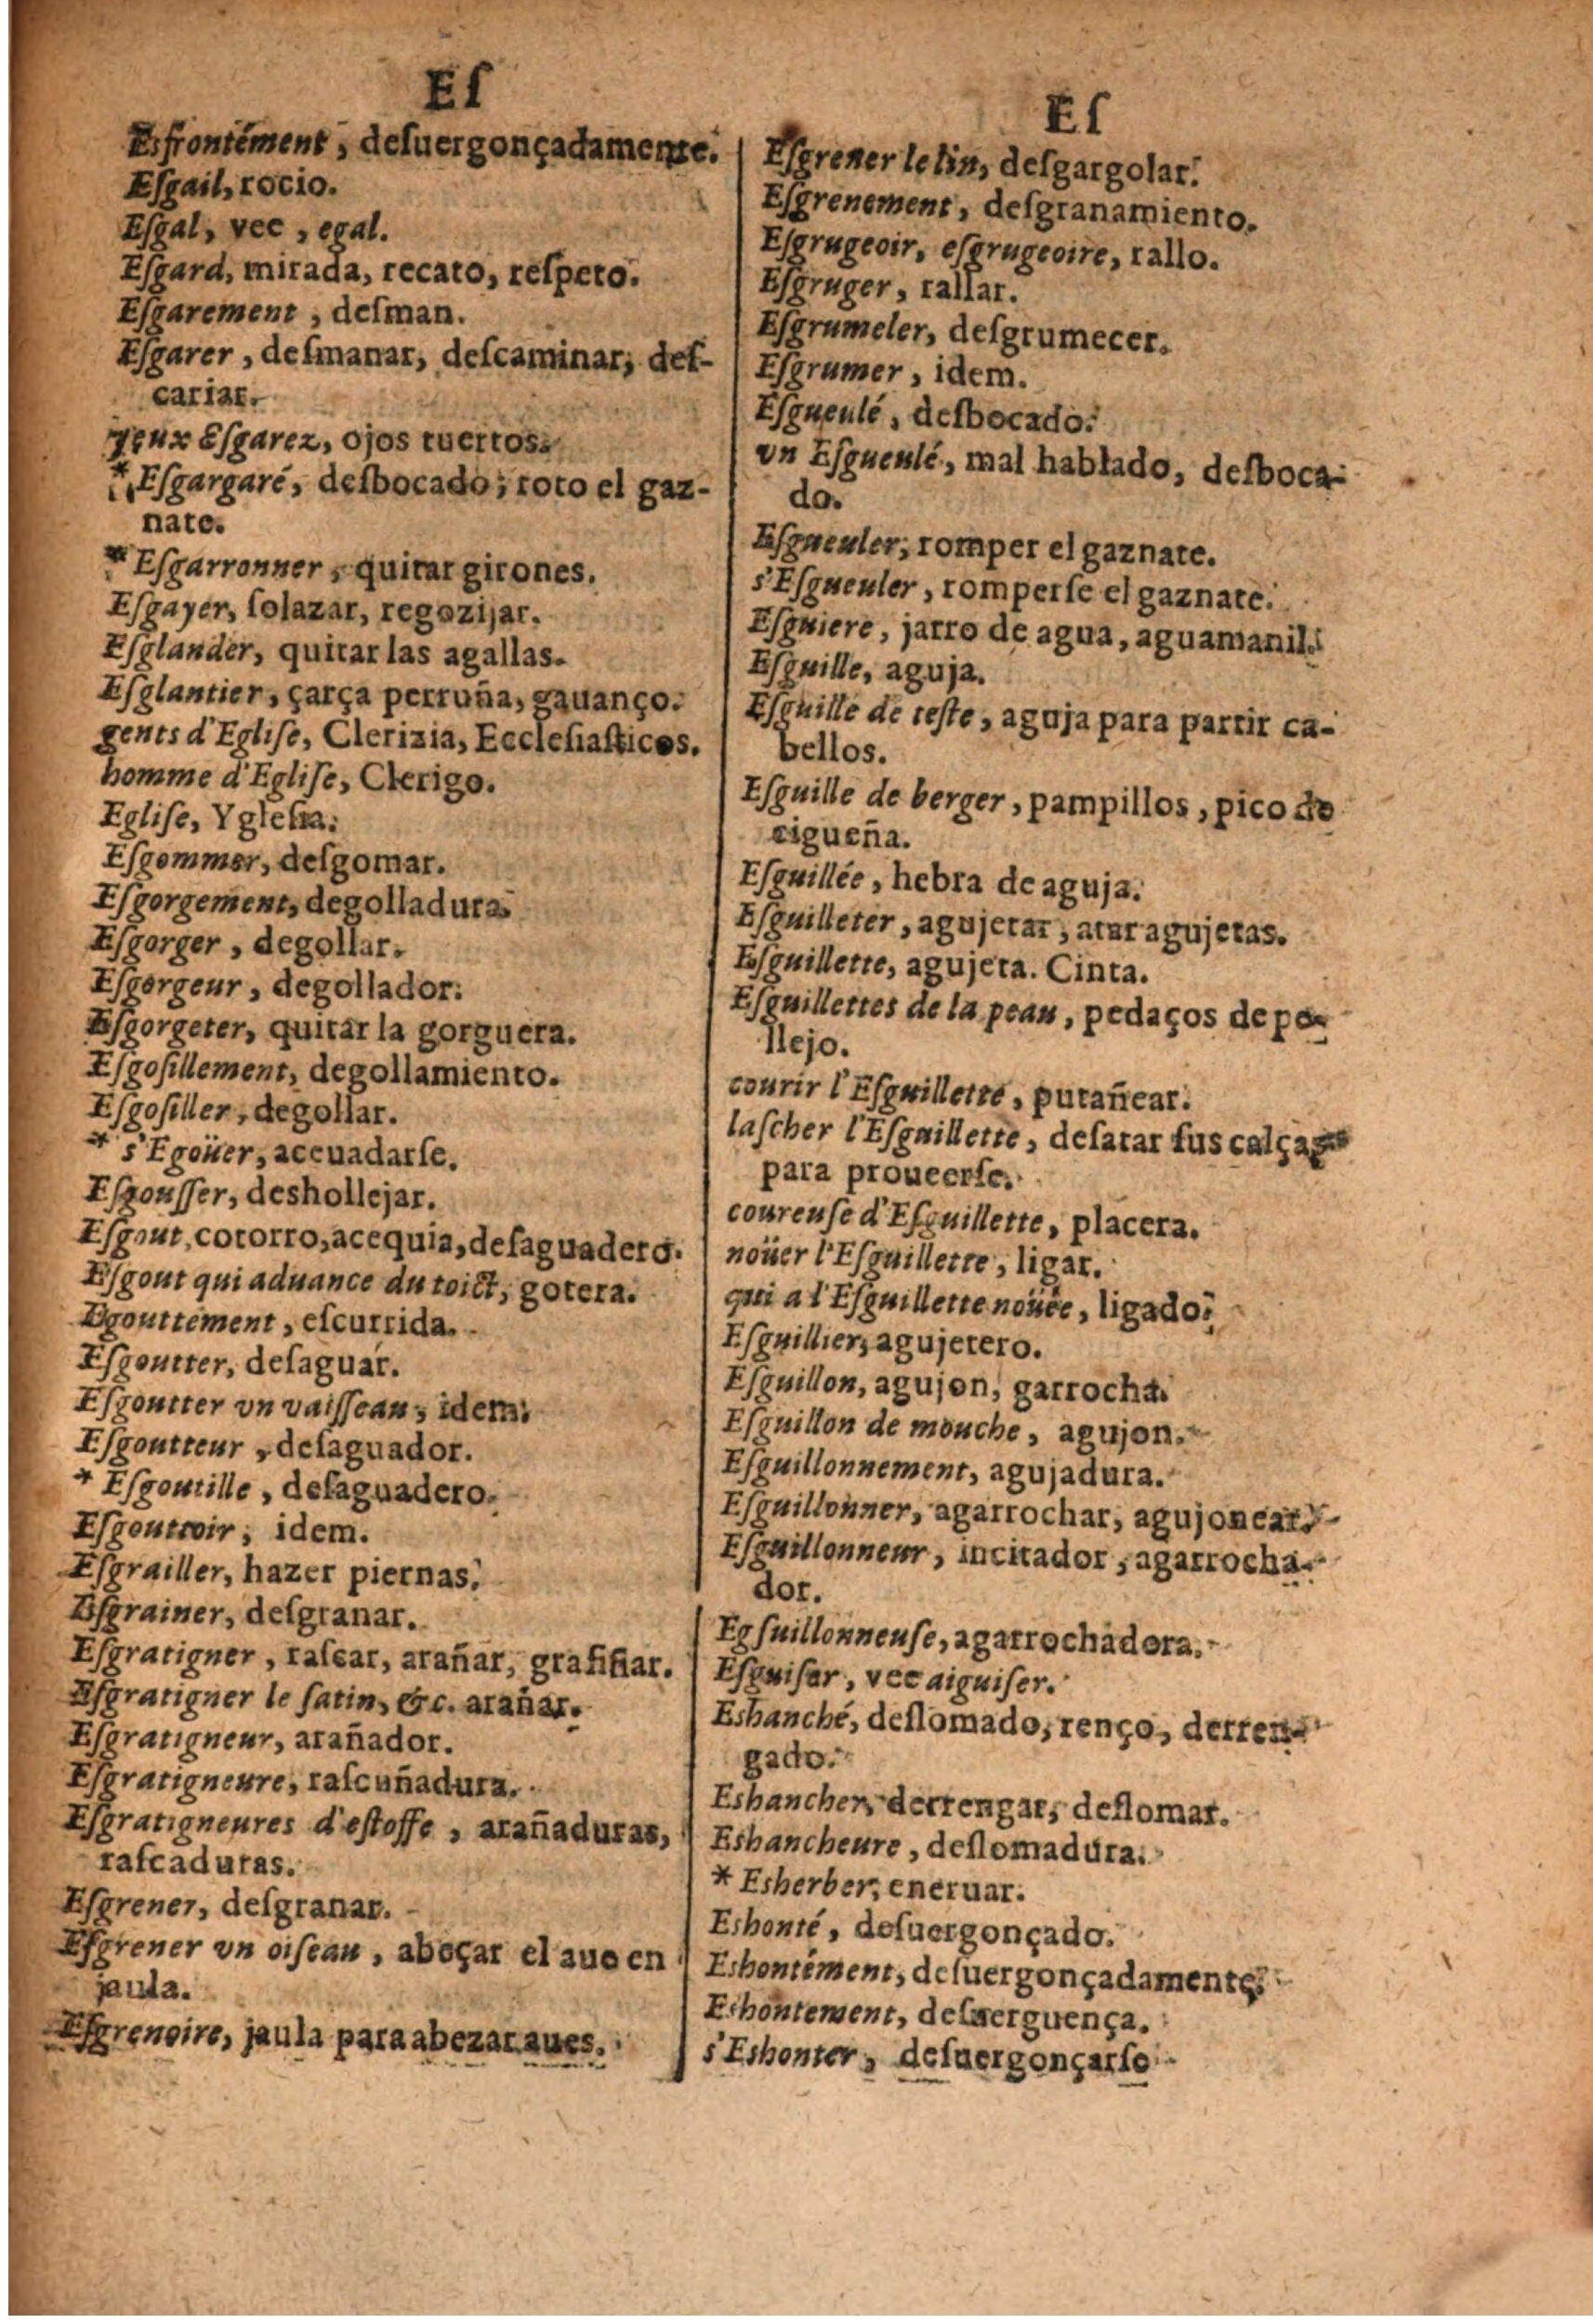 Eſ
Esfrontément, deſuergonçadamente.
Eſgail, rocio.
Eſgal, vee, egal.
Eſgard, mirada, recato, reſpeto.
Eſgarement, deſman.
Eſgarer, deſmanar, deſcaminar, deſ-
cariar.
yeux Eſgarez, ojos tuertos.
* Eſgargaré, deſbocado; roto el gaz-
nate.
* Eſgarronner, quitar girones.
Eſgayer, ſolazar, regozijar.
Eſglander, quitar las agallas.
Eſglantier, çarça perruña, gauanço.
gents d'Egliſe, Clerizia, Eccleſiaſticos.
homme d'Egliſe, Clerigo.
Egliſe, Ygleſia.
Eſgommer, deſgomar.
Eſgorgement, degolladura.
Eſgorger, degollar.
Eſgorgeur, degollador.
Eſgorgeter, quitar la gorguera.
Eſgoſillement, degollamiento.
Eſgoſiller, degollar.
* s'Egoüer, aceuadarſe.
Eſgouſſer, deshollejar.
Eſgout, cotorro, acequia, deſaguadero.
Eſgout qui aduance du toict, gotera.
Egouttement, eſcurrida.
Eſgoutter, deſaguar.
Eſgoutter vn vaiſſeau, idem.
Eſgoutteur, deſaguador.
* Eſgoutille, deſaguadero.
Eſgouttoir, idem.
Eſgrailler, hazer piernas.
Eſgrainer, deſgranar.
Eſgratigner, raſcar, arañar, grafiñar.
Eſgratigner le ſatin, &c. arañar.
Eſgratigneur, arañador.
Eſgratigneure, raſcuñadura.
Eſgratigneures d'eſtoffe, arañaduras,
raſcaduras.
Eſgrener, deſgranar.
Eſgrener vn oiſeau, abeçar el aue en
jaula.
Eſgrenoire, jaula para abezar aues.
Eſ
Eſgrener le lin, deſgargolar.
Eſgrenement, deſgranamiento.
Eſgrugeoir, eſgrugeoire, rallo.
Eſgruger, rallar.
Eſgrumeler, deſgrumecer.
Eſgrumer, idem.
Eſgueulé, deſbocado.
vn Eſgueulé, mal hablado, deſboca-
do.
Eſgueuler, romper el gaznate.
s'Eſgueuler, romperſe el gaznate.
Eſguiere, jarro de agua, aguamanil.
Eſguille, aguja.
Eſguille de teſte, aguja para partir ca-
bellos.
Eſguille de berger, pampillos, pico de
cigueña.
Eſguillée, hebra de aguja.
Eſguilleter, agujetar, atar agujetas.
Eſguillette, agujeta. Cinta.
Eſguillettes de la peau, pedaços de pe-
llejo.
courir l'Eſguillette, putañear.
laſcher l'Eſguillette, deſatar ſus calças
para proueerſe.
coureuſe d'Eſguillette, placera.
noüer l'Eſguillette, ligar.
qui a l'Eſguillette noüée, ligado.
Eſguillier, agujetero.
Eſguillon, agujon, garrocha.
Eſguillon de mouche, agujon.
Eſguillonnement, agujadura.
Eſguillonner, agarrochar, agujonear.
Eſguillonneur, incitador, agarrocha-
dor.
Egſuillonneuſe, agarrochadora.
Eſguiſer, vee aiguiſer.
Eshanché, deſlomado, renço, derren-
gado.
Eshancher, derrengar, deſlomar.
Eshancheure, deſlomadura.
* Esherber, eneruar.
Eshonté, deſuergonçado.
Eshontément, deſuergonçadamente.
Eshontement, deſuerguença.
s'Eshonter, deſuergonçarſe